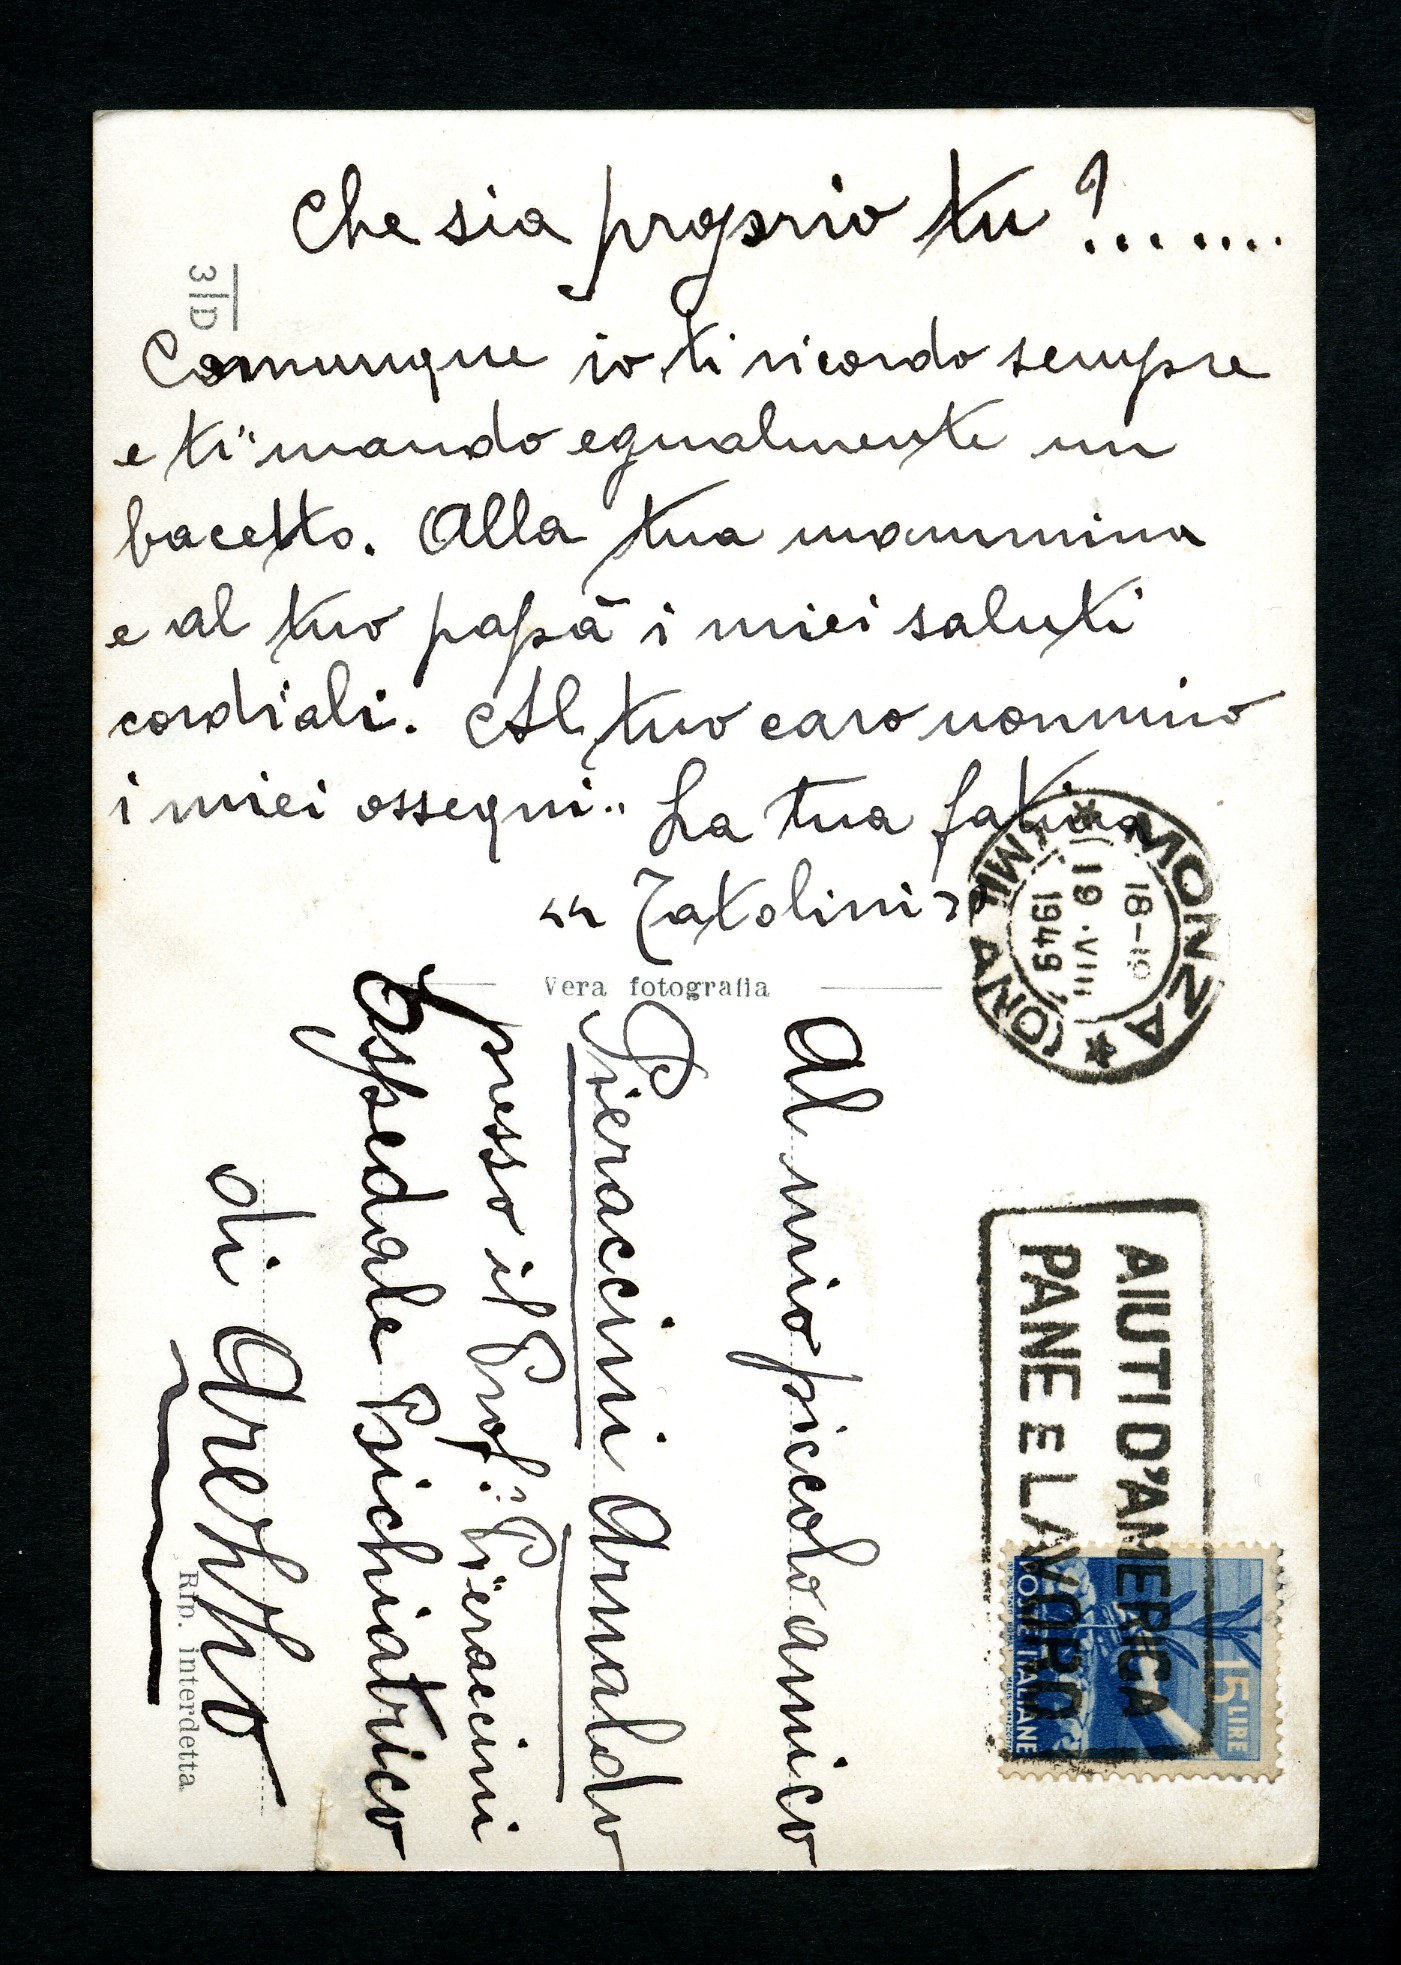 Che sia proprio tu?.......
3/D
Comunque io ti ricordo sempre
e ti mando egualmente un
bacetto. Alla tua mammina
e al tuo papà i miei saluti
cordiali. Al tuo caro nonnino
i miei ossequi.. La tua fatina
"Zatolini"
Vera fotografia
MONZA
(MILANO)
18-19
19.VIII
1949
Al mio piccolo amico
Pieraccini Arnaldo
presso il Prof: Pieraccini
Ospedale Psichiatrico
di Arezzo
Rip. interdetta
AIUTI D'AMERICA
PANE E LAVORO
15 LIRE
POSTE ITALIANE